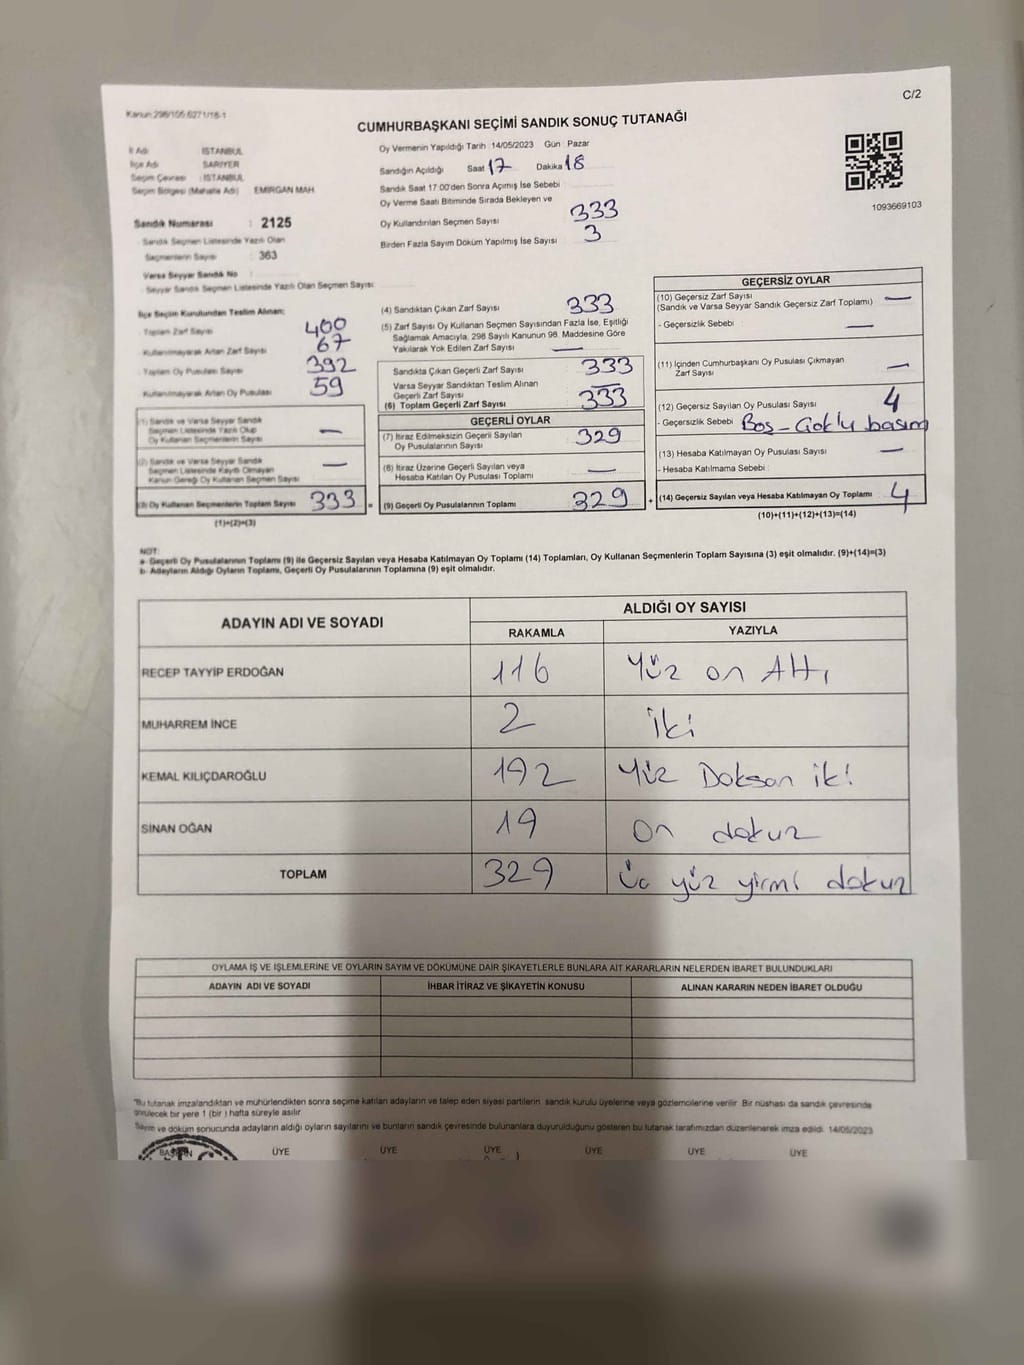 C/2
Kanun:298/105.6271/18-1
CUMHURBAŞKANI SEÇİMİ SANDIK SONUÇ TUTANAĞI
İl Adı İSTANBUL
İlçe Adı SARIYER
Seçim Çevresi : İSTANBUL
Seçim Bölgesi (Mahalle Adı) EMİRGAN MAH.
Sandık Numarası : 2125
Sandık Seçmen Listesinde Yazılı Olan
Seçmenlerin Sayısı : 363
Varsa Seyyar Sandık No :
Seyyar Sandık Seçmen Listesinde Yazılı Olan Seçmen Sayısı:
Oy Vermenin Yapıldığı Tarih :14/05/2023 Gün : Pazar
Sandığın Açıldığı Saat 17 Dakika 18
Sandık Saat 17:00'den Sonra Açımış İse Sebebi
Oy Verme Saati Bitiminde Sırada Bekleyen ve
Oy Kullandırılan Seçmen Sayısı 333
Birden Fazla Sayım Döküm Yapılmış İse Sayısı 3
1093669103
İlçe Seçim Kurulundan Teslim Alınan:
Toplam Zarf Sayısı 400
Kullanılmayarak Artan Zarf Sayısı 67
Toplam Oy Pusulası Sayısı 392
Kullanılmayarak Artan Oy Pusulası 59
(1) Sandık ve Varsa Seyyar Sandık
Seçmen Listesinde Yazılı Olup
Oy Kullanan Seçmenlerin Sayısı —
(2) Sandık ve Varsa Seyyar Sandık
Seçmen Listesinde Kayıtlı Olmayan
Kanun Gereği Oy Kullanan Seçmen Sayısı —
(3) Oy Kullanan Seçmenlerin Toplam Sayısı 333 =
(1)+(2)=(3)
(4) Sandıktan Çıkan Zarf Sayısı 333
(5) Zarf Sayısı Oy Kullanan Seçmen Sayısından Fazla İse, Eşitliği
Sağlamak Amacıyla, 298 Sayılı Kanunun 98. Maddesine Göre
Yakılarak Yok Edilen Zarf Sayısı —
Sandıkta Çıkan Geçerli Zarf Sayısı 333
Varsa Seyyar Sandıktan Teslim Alınan
Geçerli Zarf Sayısı —
(6) Toplam Geçerli Zarf Sayısı 333
GEÇERLİ OYLAR
(7) İtiraz Edilmeksizin Geçerli Sayılan
Oy Pusulalarının Sayısı 329
(8) İtiraz Üzerine Geçerli Sayılan veya
Hesaba Katılan Oy Pusulası Toplamı —
(9) Geçerli Oy Pusulalarının Toplamı 329 +
GEÇERSİZ OYLAR
(10) Geçersiz Zarf Sayısı
(Sandık ve Varsa Seyyar Sandık Geçersiz Zarf Toplamı) —
- Geçersizlik Sebebi —
(11) İçinden Cumhurbaşkanı Oy Pusulası Çıkmayan
Zarf Sayısı —
(12) Geçersiz Sayılan Oy Pusulası Sayısı 4
- Geçersizlik Sebebi Boş - Çok'lu basım
(13) Hesaba Katılmayan Oy Pusulası Sayısı —
- Hesaba Katılmama Sebebi
(14) Geçersiz Sayılan veya Hesaba Katılmayan Oy Toplamı 4
(10)+(11)+(12)+(13)=(14)
NOT:
a- Geçerli Oy Pusulalarının Toplamı (9) ile Geçersiz Sayılan veya Hesaba Katılmayan Oy Toplamı (14) Toplamları, Oy Kullanan Seçmenlerin Toplam Sayısına (3) eşit olmalıdır. (9)+(14)=(3)
b- Adayların Aldığı Oyların Toplamı, Geçerli Oy Pusulalarının Toplamına (9) eşit olmalıdır.
ADAYIN ADI VE SOYADI ALDIĞI OY SAYISI
RAKAMLA YAZIYLA
RECEP TAYYİP ERDOĞAN 116 Yüz on Altı
MUHARREM İNCE 2 iki
KEMAL KILIÇDAROĞLU 192 Yüz Doksan iki
SİNAN OĞAN 19 On dokuz
TOPLAM 329 Üç yüz yirmi dokuz
OYLAMA İŞ VE İŞLEMLERİNE VE OYLARIN SAYIM VE DÖKÜMÜNE DAİR ŞİKAYETLERLE BUNLARA AİT KARARLARIN NELERDEN İBARET BULUNDUKLARI
ADAYIN ADI VE SOYADI İHBAR İTİRAZ VE ŞİKAYETİN KONUSU ALINAN KARARIN NEDEN İBARET OLDUĞU
*Bu tutanak imzalandıktan ve mühürlendikten sonra seçime katılan adayların ve talep eden siyasi partilerin sandık kurulu üyelerine veya gözlemcilerine verilir. Bir nüshası da sandık çevresinde
görülecek bir yere 1 (bir ) hafta süreyle asılır.
Sayım ve döküm sonucunda adayların aldığı oyların sayılarını ve bunların sandık çevresinde bulunanlara duyurulduğunu gösteren bu tutanak tarafımızdan düzenlenerek imza edildi. 14/05/2023
BAŞKAN ÜYE ÜYE ÜYE ÜYE ÜYE ÜYE